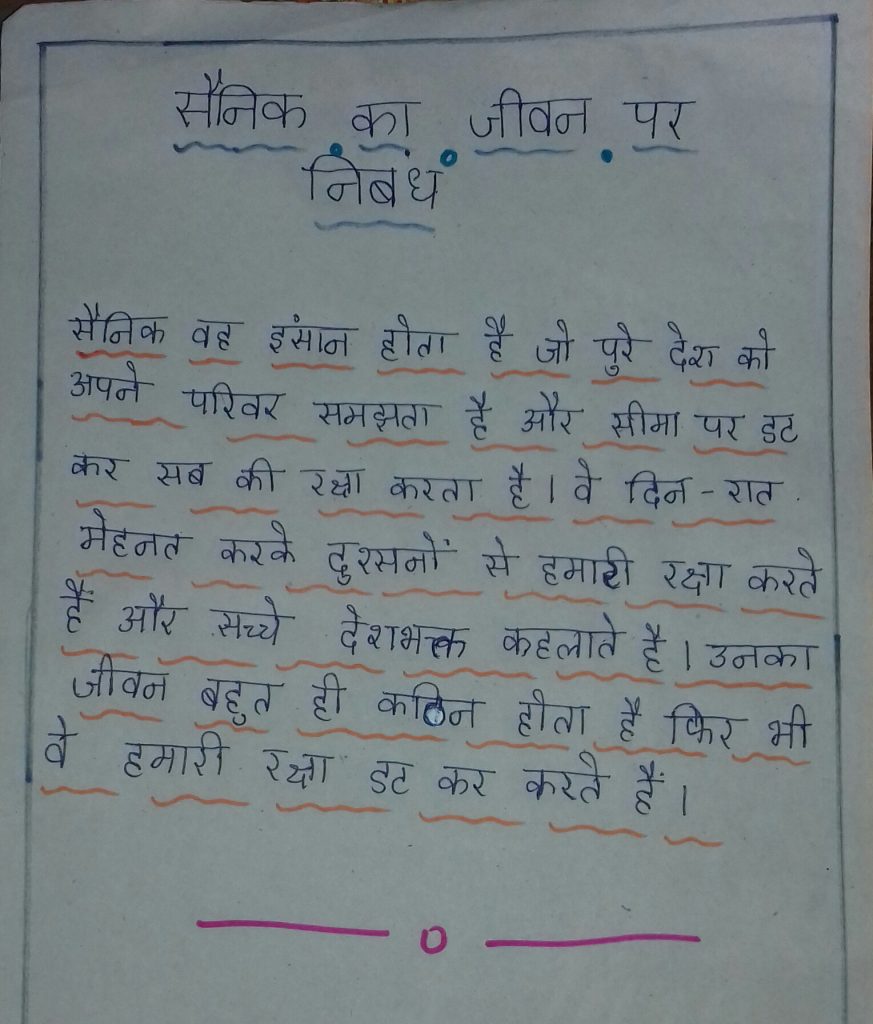 सैनिक का जीवन पर
निबंध
सैनिक वह इंसान होता है जो पुरे देश को
अपने परिवर समझता है और सीमा पर डट
कर सब की रक्षा करता है। वे दिन-रात
मेहनत करके दुरसनों से हमारी रक्षा करते
हैं और सच्चे देशभक्त कहलाते है। उनका
जीवन बहुत ही कठिन होता है फिर भी
वे हमारी रक्षा डट कर करते हैं।